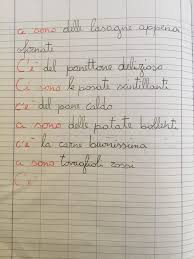 ci sono delle lasagne appena
sfornate
C'è del panettone delizioso
Ci sono le posate scintillanti
c'è del pane caldo
ci sono delle patate bollenti
c'è la carne buonissima
ci sono tovaglioli rossi
C'è